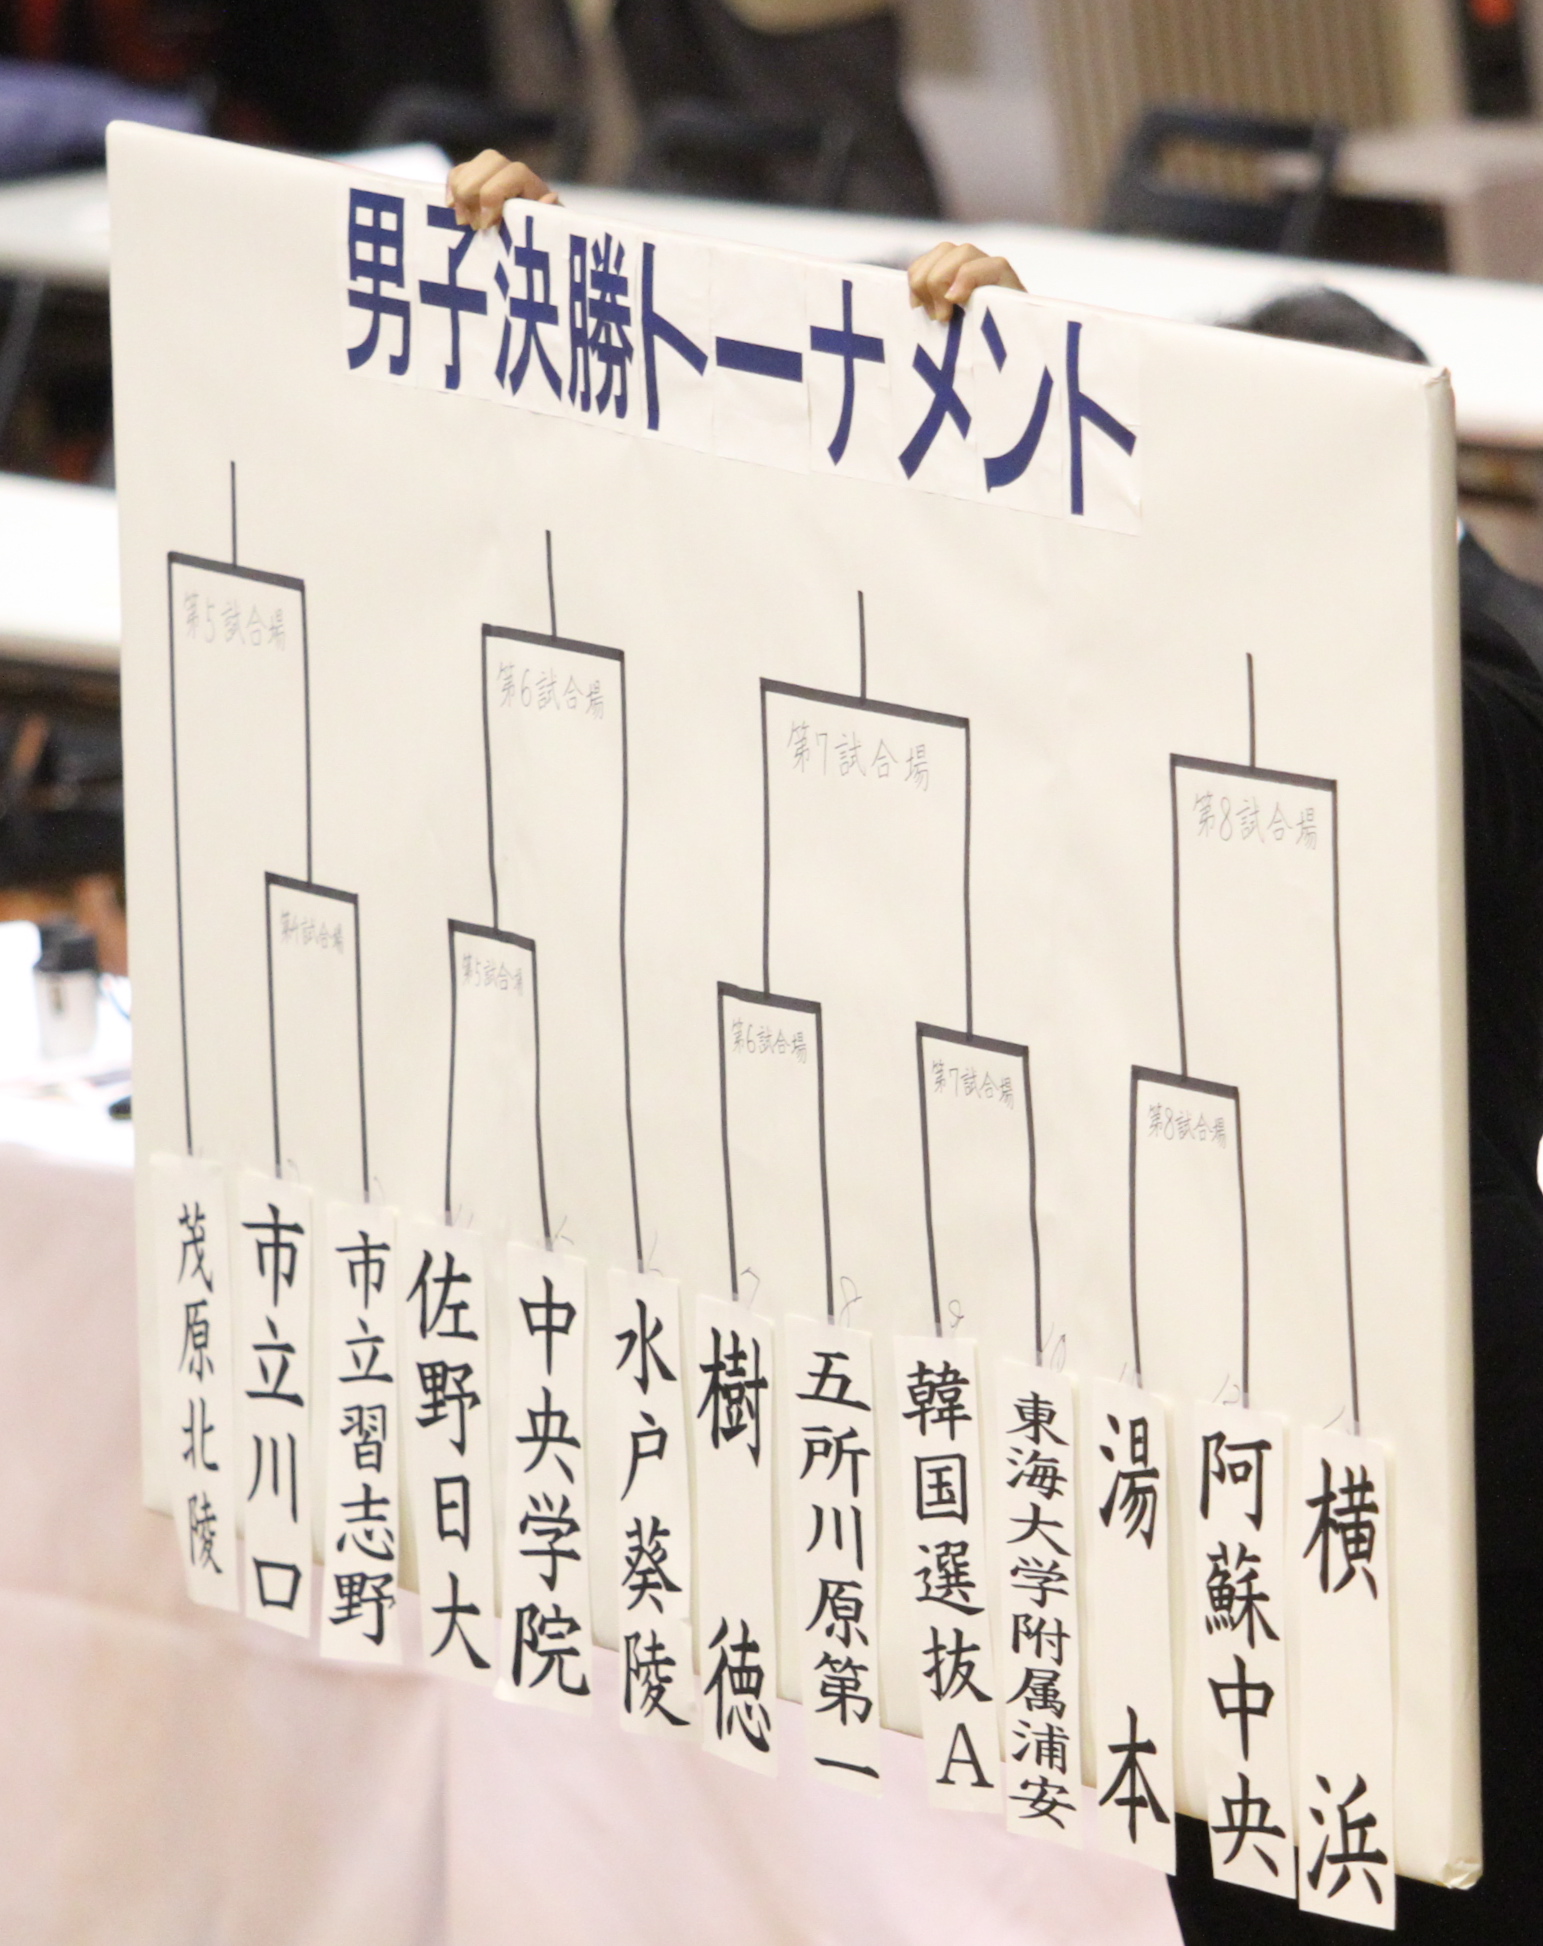 男子決勝トーナメント
第5試合場
第6試合場
第7試合場
第8試合場
第4試合場
第5試合場
第6試合場
第7試合場
第8試合場
茂原北陵
市立川口
市立習志野
佐野日大
中央学院
水戸葵陵
樹徳
五所川原第一
韓国選抜A
東海大学附属浦安
湯本
阿蘇中央
横浜